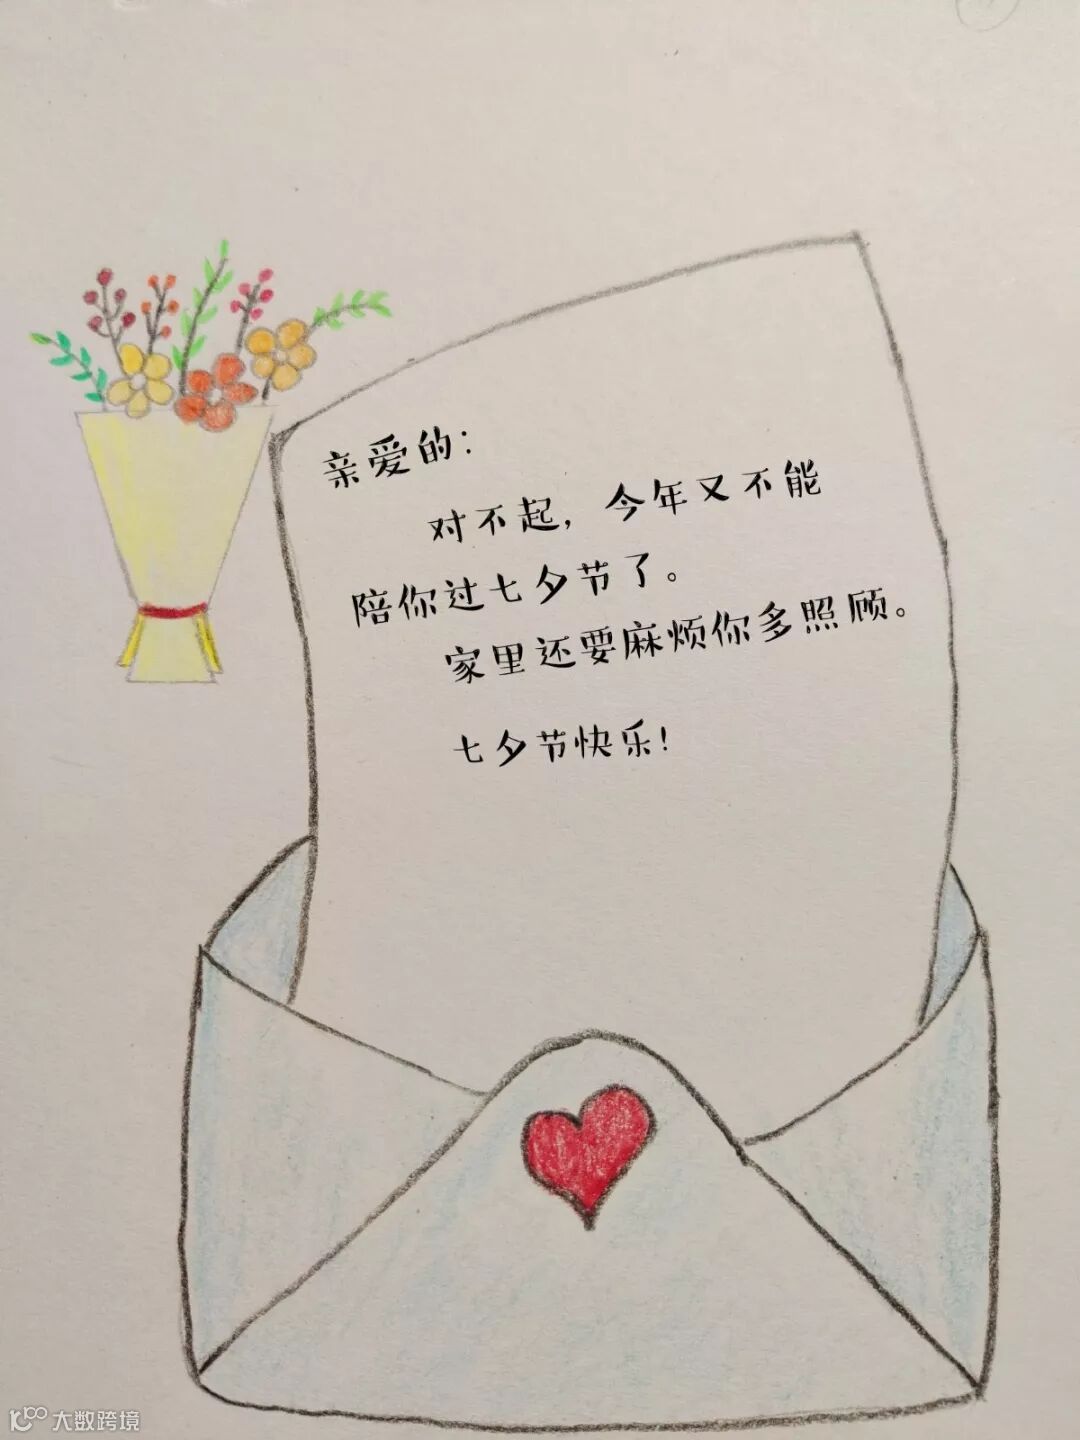 亲爱的：
对不起，今年又不能
陪你过七夕节了。
家里还要麻烦你多照顾。
七夕节快乐！
大数跨境